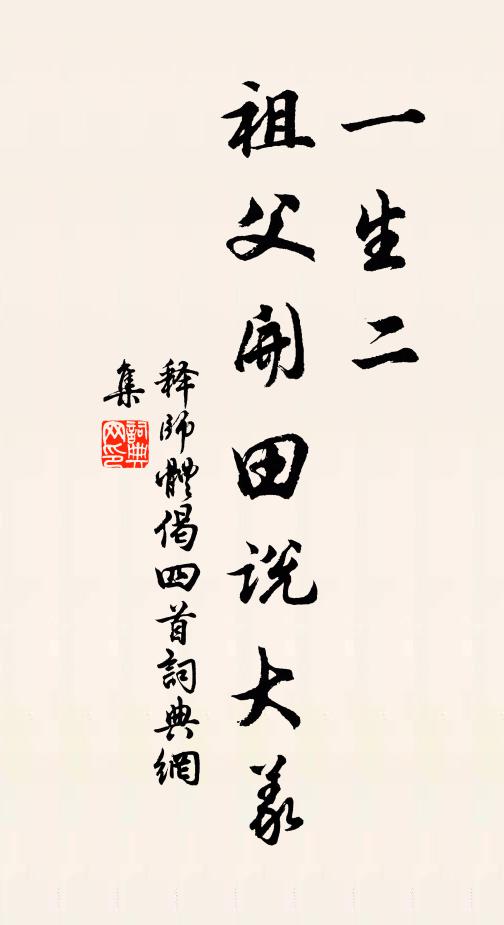 一生二
祖父開田説大義
释師體偈四首詞典網
集
詞典
网印